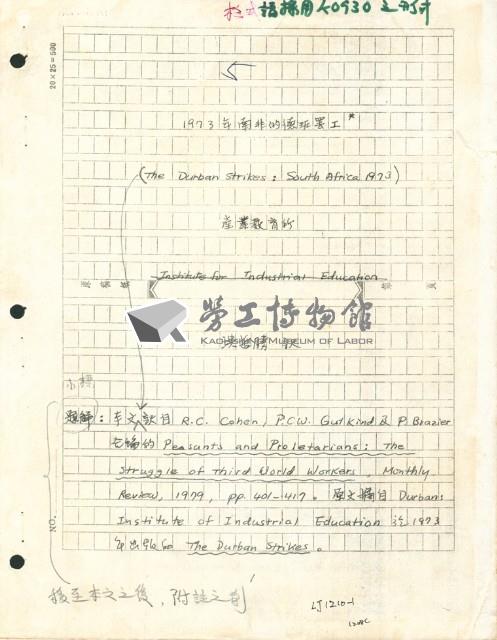 格式請採用40930之形式
20×25=500
1973年南非的德班罷工*
(The Durban Strikes: South Africa 1973)
產業教育所
Institute for Industrial Education
勞工博物館
KAOHSIUNG MUSEUM OF LABOR
譯
小標
題解：本文 目 R.C. Cohen, P.C.W. Gutkind 及 P. Brazier
的 Peasants and Proletarians: The
Struggle of Third World Workers, Monthly
Review, 1979, pp. 401-417。原文摘自 Durbans
Institute of Industrial Education 於1973
年出版的 The Durban Strikes。
NO.
接至本文之後，附註之前
LJ1210-1